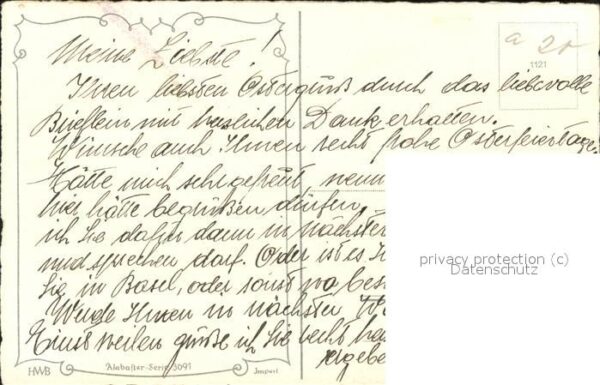 Meine Liebste!
a 20
1121
Ihren liebsten Ostergruß durch das liebevolle
Brieflein mit herzlichen Dank erhalten.
Wünsche auch Ihnen recht frohe Osterfeiertage.
Hätte mich sehr gefreut, wenn
hier hätte begrüßen dürfen,
ich Sie dafür dann in nächster
und sprechen darf. Oder ist es
Sie in Basel, oder sonst wo bes
Werde Ihnen in nächster
Einstweilen grüße ich Sie recht he
ergebe
privacy protection (c)
Datenschutz
HWB
Alabaster-Serie 3091
Import